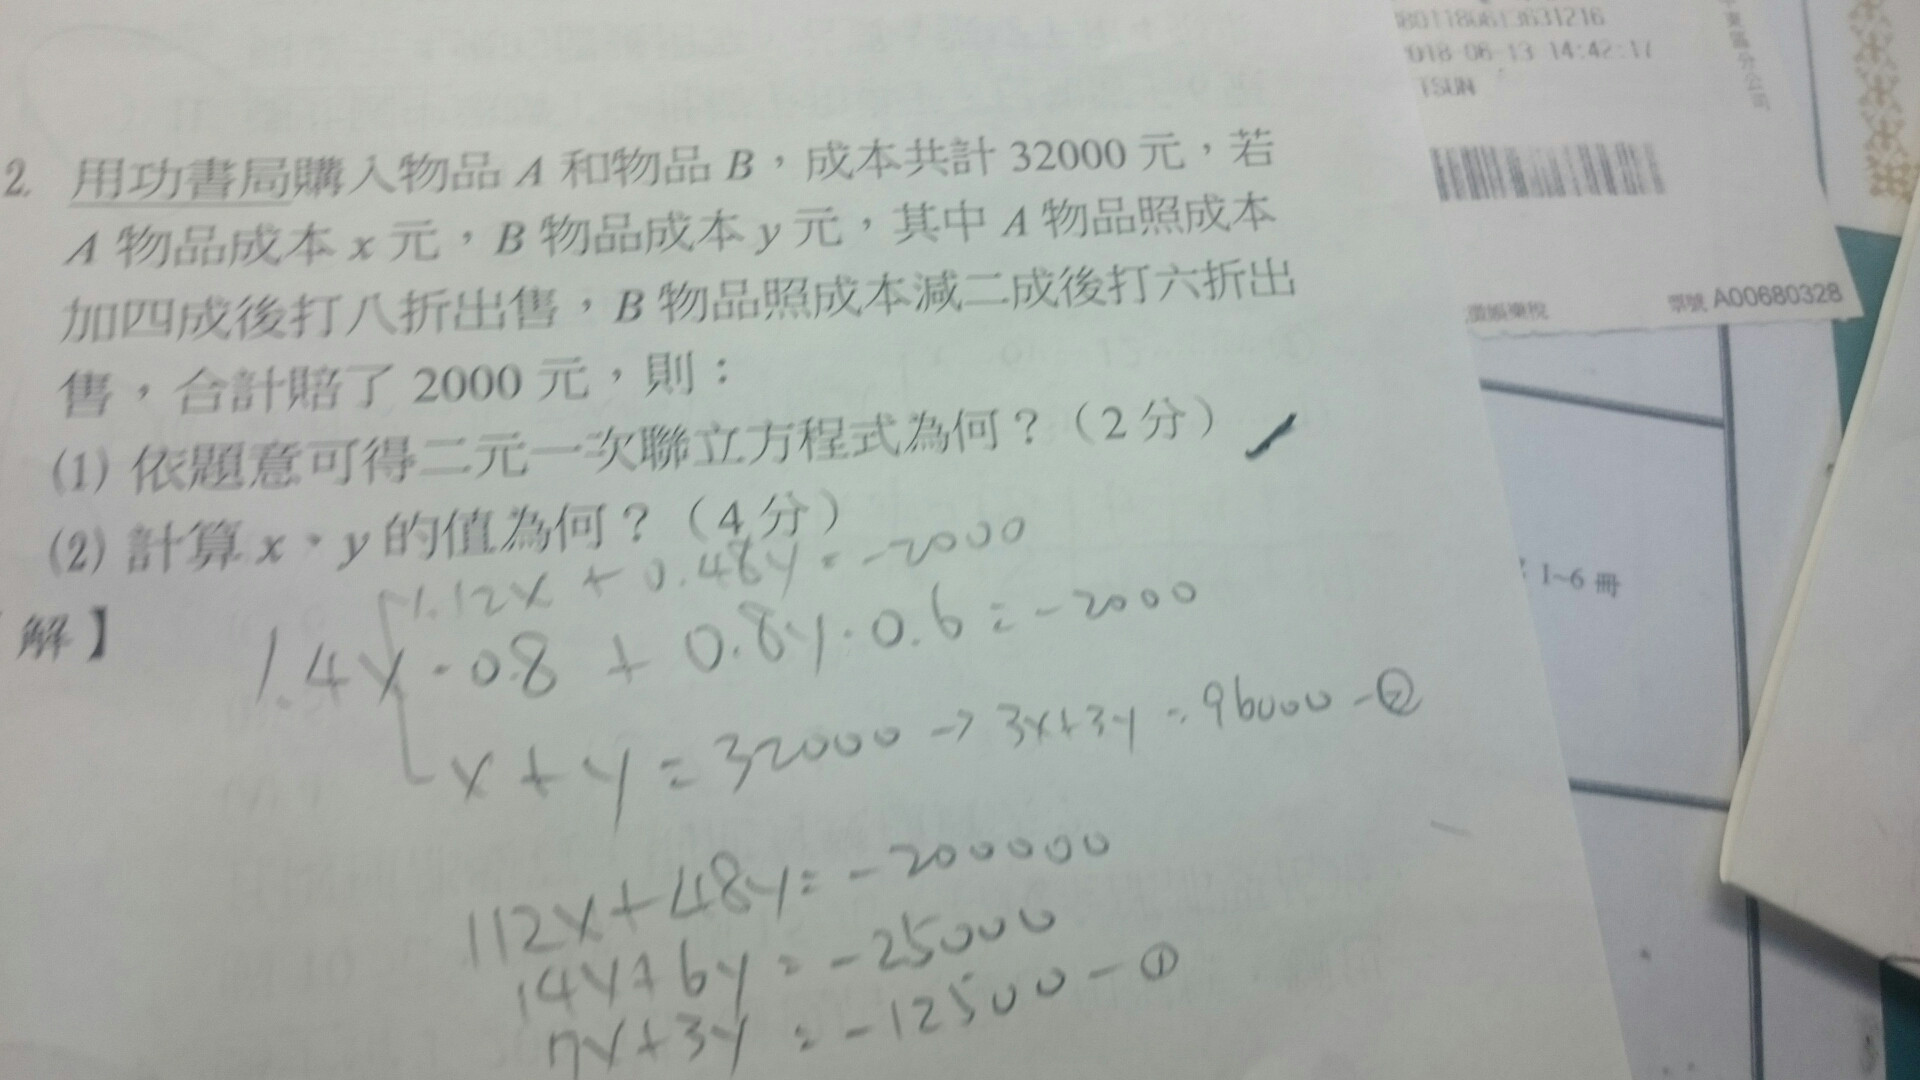 2. 用功書局購入物品 A 和物品 B，成本共計 32000 元，若
A 物品成本 x 元，B 物品成本 y 元，其中 A 物品照成本
加四成後打八折出售，B 物品照成本減二成後打六折出
售，合計賠了 2000 元，則：
(1) 依題意可得二元一次聯立方程式為何？（2 分）
(2) 計算 x、y 的值為何？（4 分）
1.12x + 0.48y = -2000
解】
1.4x·0.8 + 0.8y·0.6 = -2000
x + y = 32000 → 3x+3y = 96000 -②
112x+48y = -200000
14x+6y = -25000
7x+3y = -12500 -①
018-06-13 14:42:17
TSUN
分公司
票號 A00680328
1~6 冊